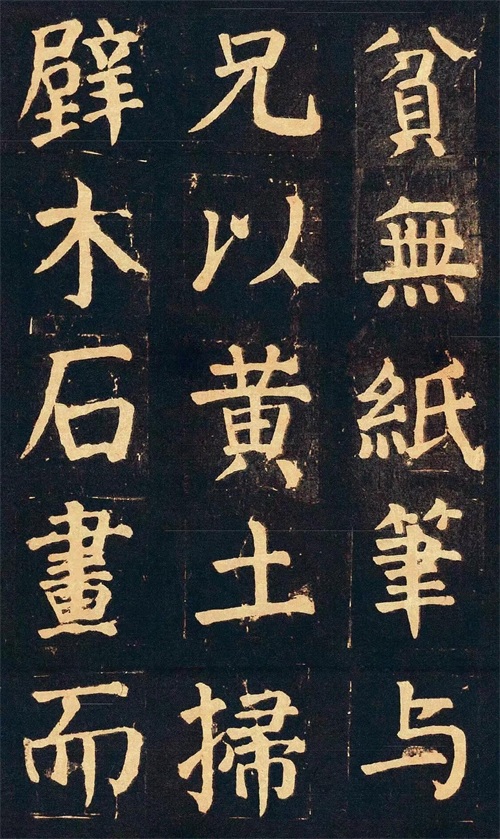 貧無紙筆与
兄以黄土掃
壁木石畫而